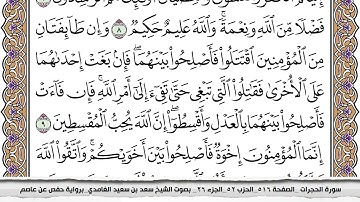 فَضْلًا مِّنَ ٱللَّهِ وَنِعْمَةً ۚ وَٱللَّهُ عَلِيمٌ حَكِيمٌ ٨ وَإِن طَآئِفَتَانِ
مِنَ ٱلْمُؤْمِنِينَ ٱقْتَتَلُوا۟ فَأَصْلِحُوا۟ بَيْنَهُمَا ۖ فَإِنۢ بَغَتْ إِحْدَىٰهُمَا
عَلَى ٱلْأُخْرَىٰ فَقَٰتِلُوا۟ ٱلَّتِى تَبْغِى حَتَّىٰ تَفِىٓءَ إِلَىٰٓ أَمْرِ ٱللَّهِ ۚ فَإِن فَآءَتْ
فَأَصْلِحُوا۟ بَيْنَهُمَا بِٱلْعَدْلِ وَأَقْسِطُوٓا۟ ۖ إِنَّ ٱللَّهَ يُحِبُّ ٱلْمُقْسِطِينَ ٩
إِنَّمَا ٱلْمُؤْمِنُونَ إِخْوَةٌ فَأَصْلِحُوا۟ بَيْنَ أَخَوَيْكُمْ ۚ وَٱتَّقُوا۟ ٱللَّهَ
سورة الحجرات _الصفحة ٥١٦ _الحزب ٥٢ _الجزء ٢٦ _ بصوت الشيخ سعد بن سعيد الغامدي _برواية حفص عن عاصم